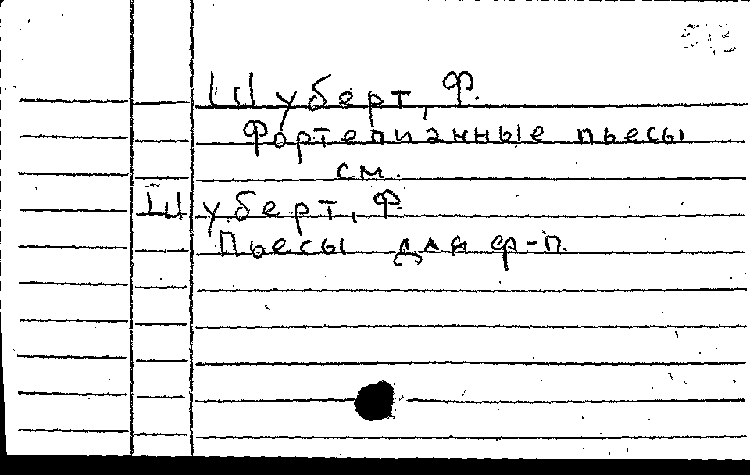 Шуберт, Ф.
Фортепианные пьесы
см.
Шуберт, Ф.
Пьесы для ф-п.